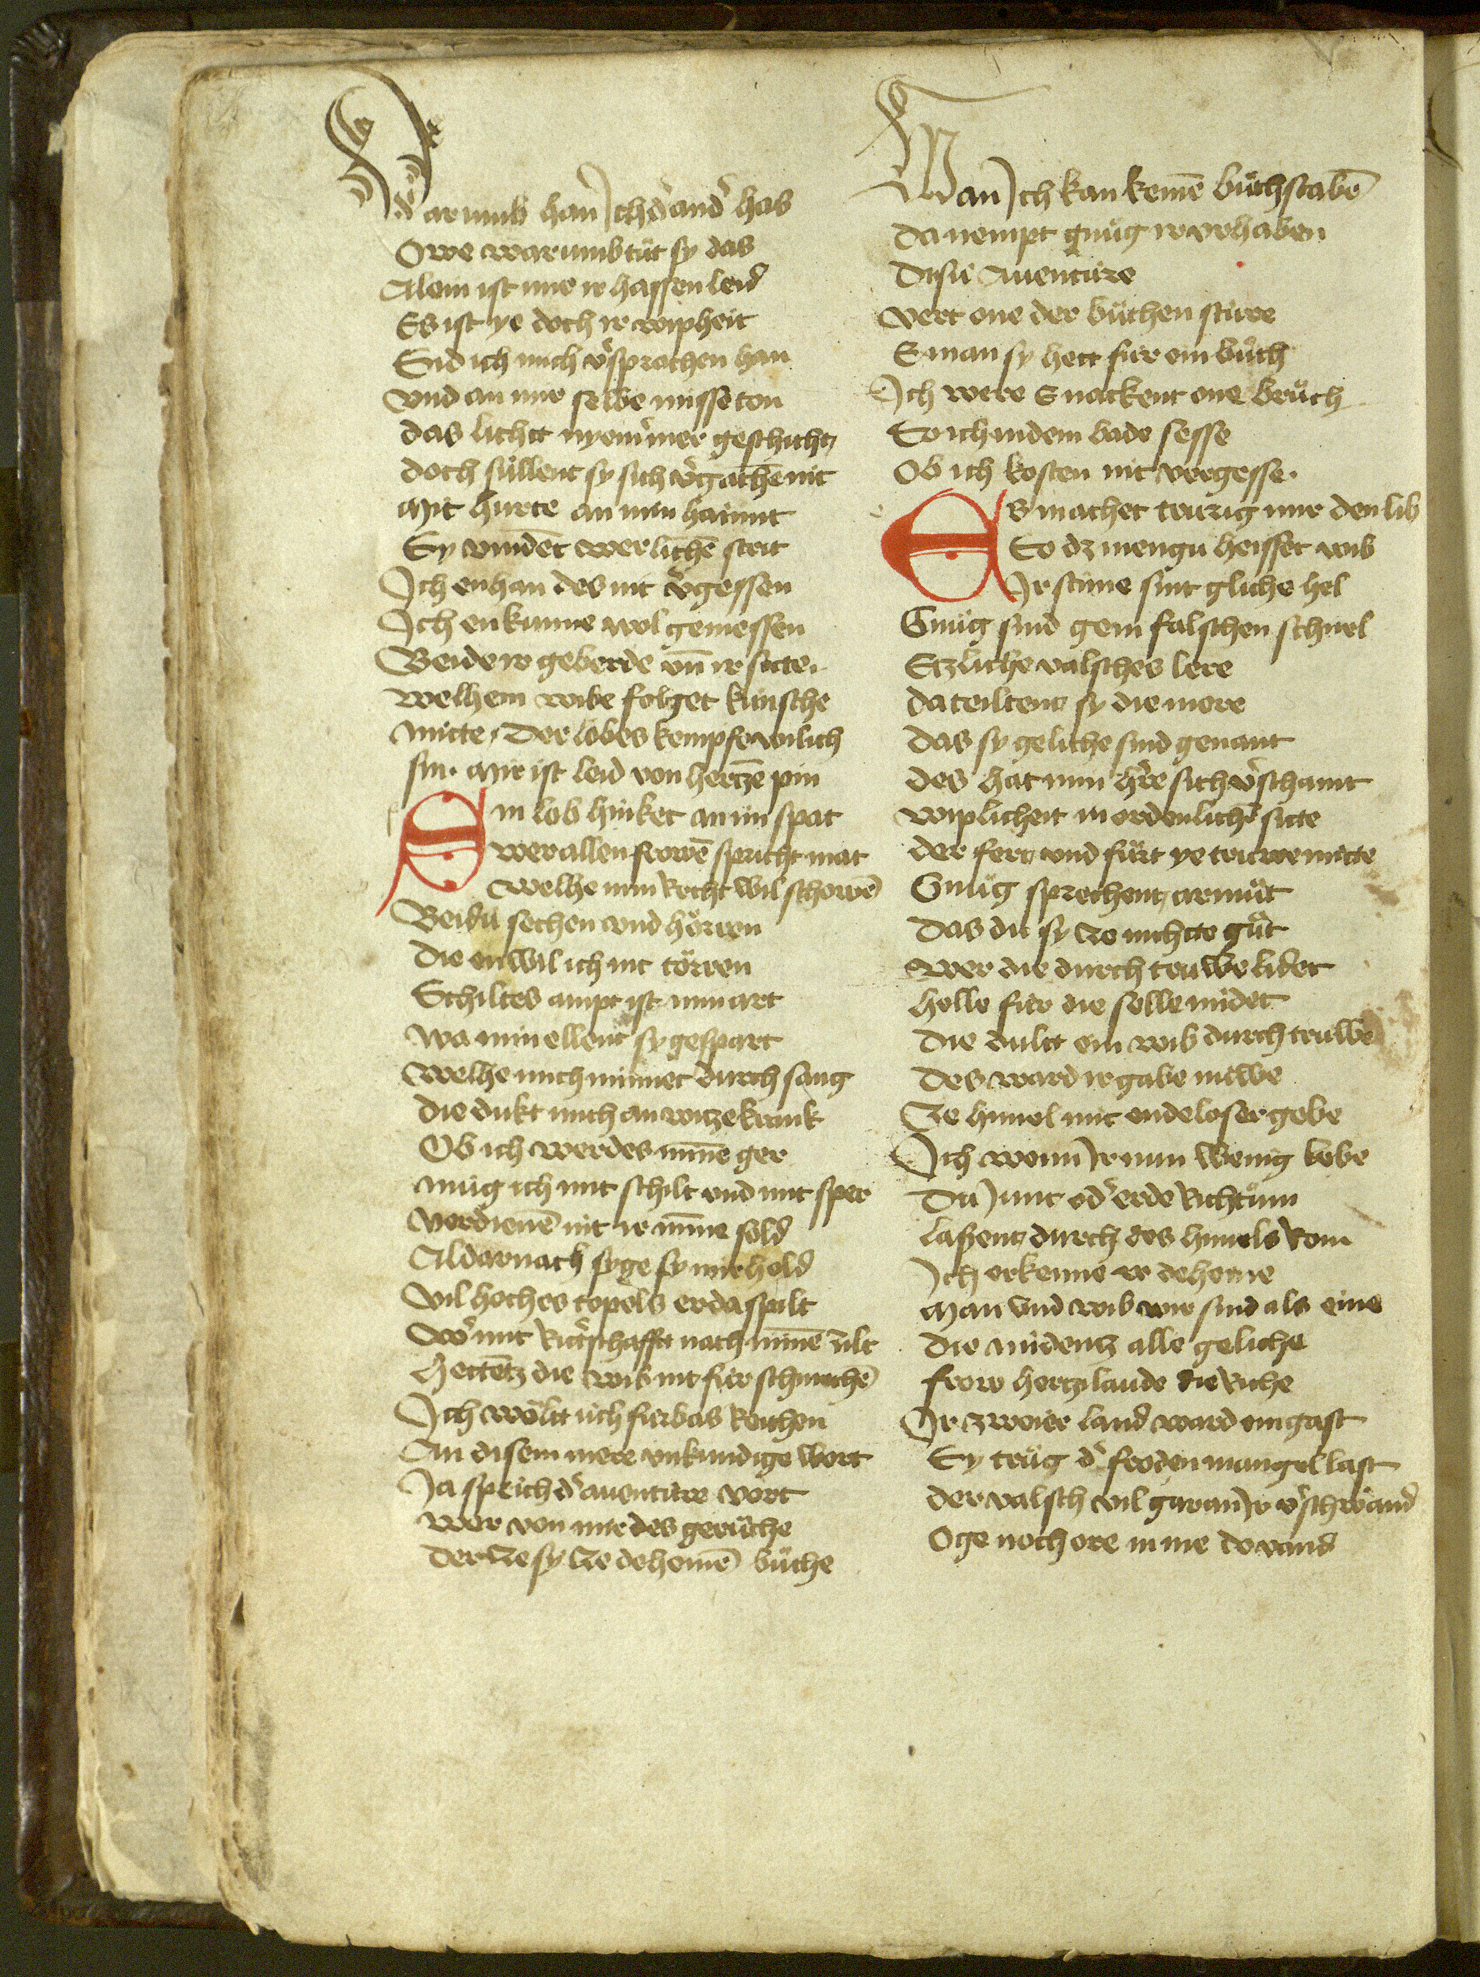 Darumb han Ich d' and' has
Owe warumb tůt sy das
Alein ist mir ir hassen leid
Es ist ye doch ir wipheit
Sid ich mich v'sprochen han
Vnd an mir selbe misseton
das lichtt nyem'mer geschicht
doch süllent sy sich v'gachē nit
Mit hurte an min hāmit
Sy vindēt werlichē strit
Ich enhan des nit v'gessen
Ich enkunne wol gemessen
Beide ir geberde vn̄ ir sitte.
welhem wibe folget künsche
mitte Der lobes kempfe wil ich
sin. Mir ist leid von hertzē pin
Sin lob hinket an im spat
wer allen frowē spricht mat
Welhe min Recht wil schowē
Beidü sechen vnd hörren
Die en wil ich nit törren
Schiltes ampt ist min art
wa min ellent sy gespart
Welhe mich minnet durch sang
die dukt mich an witze krank
Ob ich werdes minne ger
mug ich mit schilt vnd mit sper
verdienē nit ir minne sold
Aldarnach syge sy mir hold
Vil hoches topels er da spilt
W' mit Ritt'schafft nach minnē zilt
Hettētz die wib nit für schmeichē
Ich wöltt üch fürbas Reichen
An disem mere vnkundige wort
Ja sprich d' auentüre vort
wer von mir des gerůche
Der Ze sy Ze deheinē bůche
Wan Ich kan keinē bůchstabē
Da nempt gnůg ir vrhaben
Disü Auentüre
Vert one der bůchen stüre
E man sy hett für ein bůch
Ich were E nackent one brůch
So ich in dem bade sesse
Ob ich kosten nit vergesse.
Es machet trurig mir den lib
So dz mengü heisset wib
Ir stime sint gliche hel
Gnůg sind gein falschen schnel
Etzliche valsches lere
da teiltent sy die mere
das sy geliche sind genant
des hat min h're sich v'schamt
wiplicheit in ordenlich' sitte
der fert vnd fürt ye truwe mitte
Gnůg sprechent armůt
Das dü sy Ze nichtte gůt
Wer die durch truwe lidet
helle für die selle midet
Die dultt ein wib durch truwe
Des ward ir gabe nuwe
Ze himel mit endeloser gebe
Ich wenn Ir nun wenig lebe
Dü Iunt od' erde Richtům
lassent durch des himels Rom
Ich erkenne ir deheine
Man vnd wib mir sind als eine
Die midentz alle geliche
frow hertzilaude die Riche
Ir zweier land ward ein gast
Sy trůg d' froden mangel last
der valsch vil gar an Ir v'schwand
Oge noch ore in nie do vand